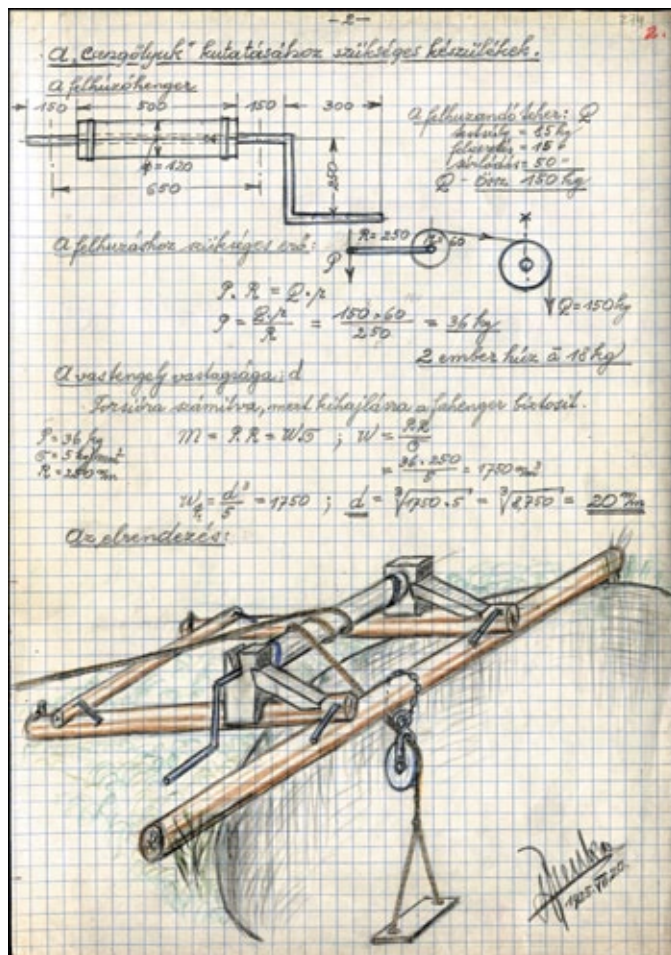 -2-
2.
A „Czangólyuk" kutatásához szükséges készülékek.
A felhúzóhenger
150 500 150 300
ϕ=120
650
250
A felhuzandó teher: Q
testsúly = 85 kg
felszerelés = 15 "
súrlódás = 50 "
Q - össz 150 kg
A felhuzáshoz szükséges erő:
P
R = 250
r=60
Q=150 kg
P.R = Q.r
P = Q.r / R = 150 × 60 / 250 = 36 kg
2 ember húz à 18 kg
A vastengely vastagsága: d
Torsióra számítva, mert kihajlásra a fahenger biztosit.
P = 36 kg
σ = 5 kg/mm²
R = 250 m/m
M = P.R = Wσ ; W = P.R / σ
= 36 . 250 / 5 = 1750 m/m³
= d³ / 5 = 1750 ; d = ∛1750.5 = ∛8,750 = 20 m/m
Az elrendezés: